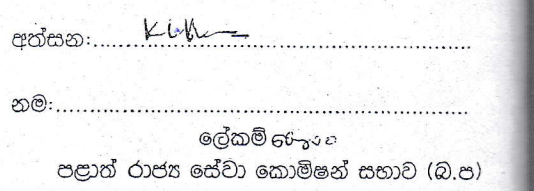 අත්සන:......................................................
නම:............................................................
ලේකම්
පළාත් රාජ්‍ය සේවා කොමිෂන් සභාව (බ.ප)